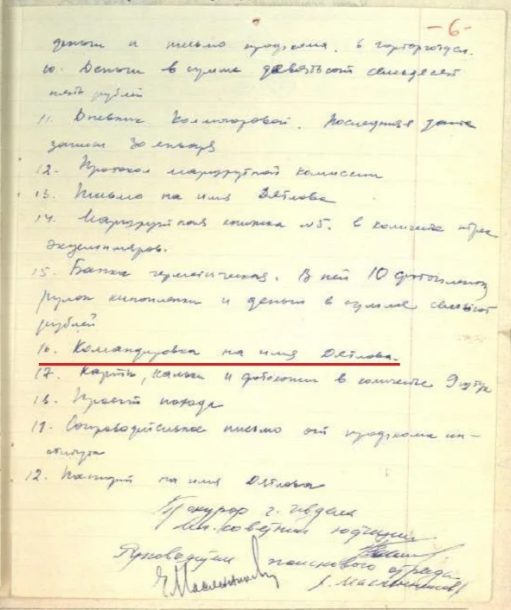 -6-
деньги и письмо профкома. в горторготдел.
10. Деньги в сумме девятьсот семьдесят
пять рублей
11. Дневник Колмогоровой. Последняя дата
записи 30 января
12. Протокол маршрутной комиссии
13. Письмо на имя Дятлова
14. Маршрутная книжка №5. в количестве трех
экземпляров.
15. Банка герметическая. В ней 10 фотопленок
рулон кинопленки и деньги в сумме семьсот
рублей
16. Командировка на имя Дятлова.
17. Карты, кальки и фотокопии в количестве 9 штук
18. Проект похода
19. Сопроводительное письмо от профкома ин-
ститута
12. Паспорт на имя Дятлова
Прокурор г. Ивделя
Мл. советник юстиции
Руководитель поискового отряда
Е. Масленников